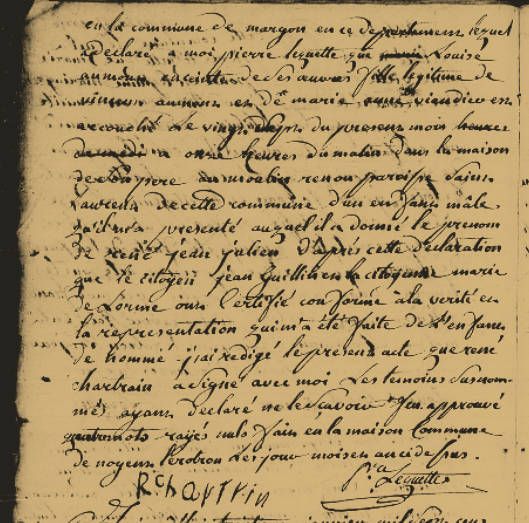 en la commune de margon en ce departement lequel
a declaré à moi pierre leguette que marie Louise
enceinte de ses œuvres fille legitime de
vincent et de marie anne
accouché le vingt du present mois heures
de midi a onze heures du matin dans la maison
de son pere au moulin renou paroisse saint
Laurent de cette commune d'un enfant mâle
qu'il m'a presenté auquel il a donné le prenom
de rené jean julien d'après cette déclaration
que le citoyen jean Guillin et la citoyenne marie
de Lorme ont Certifié conforme à la verité et
la representation qui m'a été faite de L'enfant
denommé j'ai redigé le present acte que rené
chartrain a signé avec moi Les temoins susnom-
més ayant declaré ne le scavoir approuvé
quatre mots rayés nuls fait en la maison Commune
de nogent lerotrou les jour mois et an ci dessus.
R Chartrin
P.re Leguette